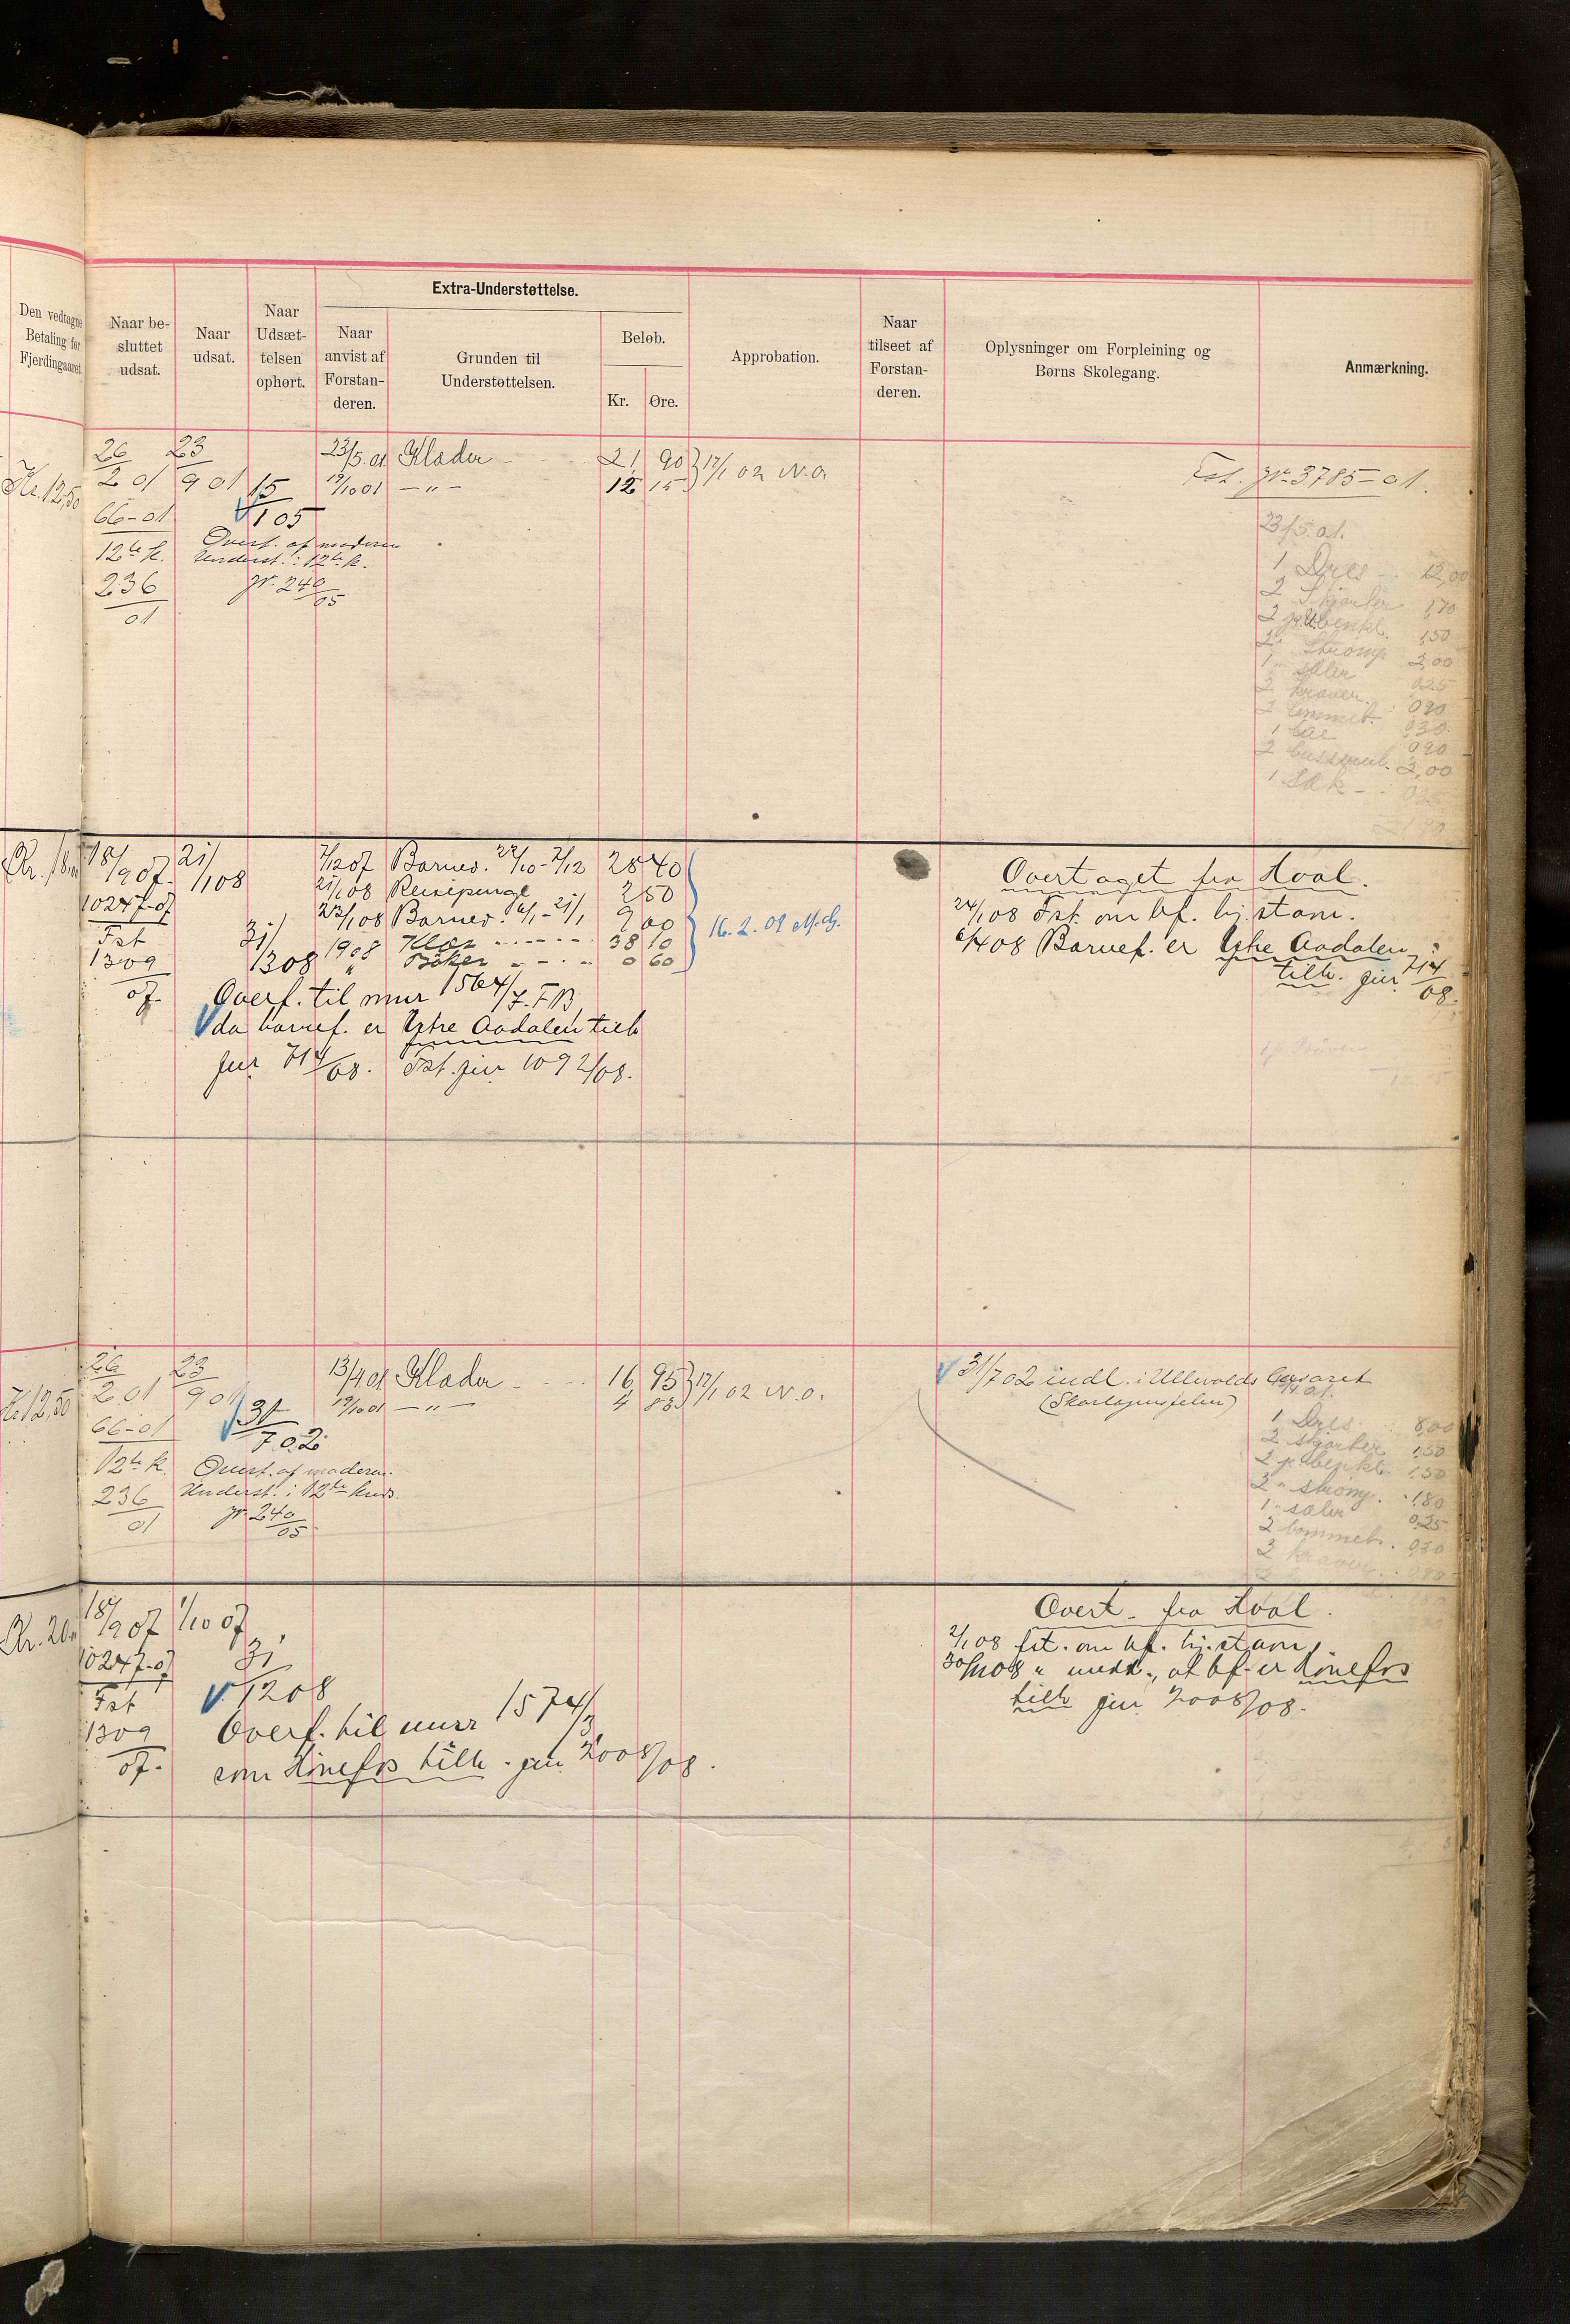 Den vedtagne
Betaling for
Fjerdingaaret
Naar be-
sluttet
udsat.
Naar
udsat.
Naar
Udsæt-
telsen
ophørt.
Extra-Understøttelse.
Naar
anvist af
Forstan-
deren.
Grunden til
Understøttelsen.
Beløb.
Kr.
Øre.
Approbation.
Naar
tilseet af
Forstan-
deren.
Oplysninger om Forpleining og
Børns Skolegang.
Anmærkning.
Kr. 12,50
26/2 01
66-01
12te k.
236/01
23/9 01
15/1 05
Overf. af moderen
Underst. i 12te k.
jr. 240/05
23/5 01 Klæder 21 90
19/10 01 — " — 12 15
17/1 02 N.O.
Fst. jr. 3785-01.
23/5.01.
1 Dres 12,00
2 Skjorter 1,70
2 p. Ubenkl. 1,50
2 " Strømp. 2,00
1 " sæler 0,25
2 kraver
2 lommet. 0,30
2,00
1 Sæk
18/9 07.
10247-07
Fst
1309/07.
21/1 08
31/3 08
7/12 07 Barnev. 22/10-7/12 28 40
21/1 08 Reisepenge 2 50
23/1 08 Barnev. 6/1-21/1 9 00
1908 Klær 38 10
" Bøker 0 60
16.2.09
Overf. til mur 1564/7. FB
da barnef. er Ytre Aadalen tilh
jur 714/08. Fst. jur. 1092/08.
Overtaget fra Hval.
24/1 08 Fst. om bf. hj.stavn.
6/4 08 Barnef. er Ytre Aadalen
tilh. jur. 714/08.
Kr. 12,50
26/2 01
66-01
12te k.
236/01
23/9 01
31/7 02
Overf. af moderen.
Underst. i 12te kreds.
jr. 240/05
13/4 01 Klæder 16 95
19/10 01 — " — 4 83
17/1 02 N.O.
31/7 02 indl. i Ullevolds
(Skarlagensfeber)
1 Dres 8,00
2 skjorter 1,50
2 p. ubenkl. 1,50
2 " strømp. 1,80
1 " sæler 0,25
2 lommet. 0,30
2 kraver
18/9 07
10247-07
Fst
1309/07.
1/10 07
31/12 08
Overf. til murr 1574/3
som Hønefos tilh. jur. 2008/08.
Overt. fra Hval.
2/1 08 fst. om bf. hj.stavn.
30/11 08 " medd., at bf. er Hønefos
tilh jur. 2008/08.